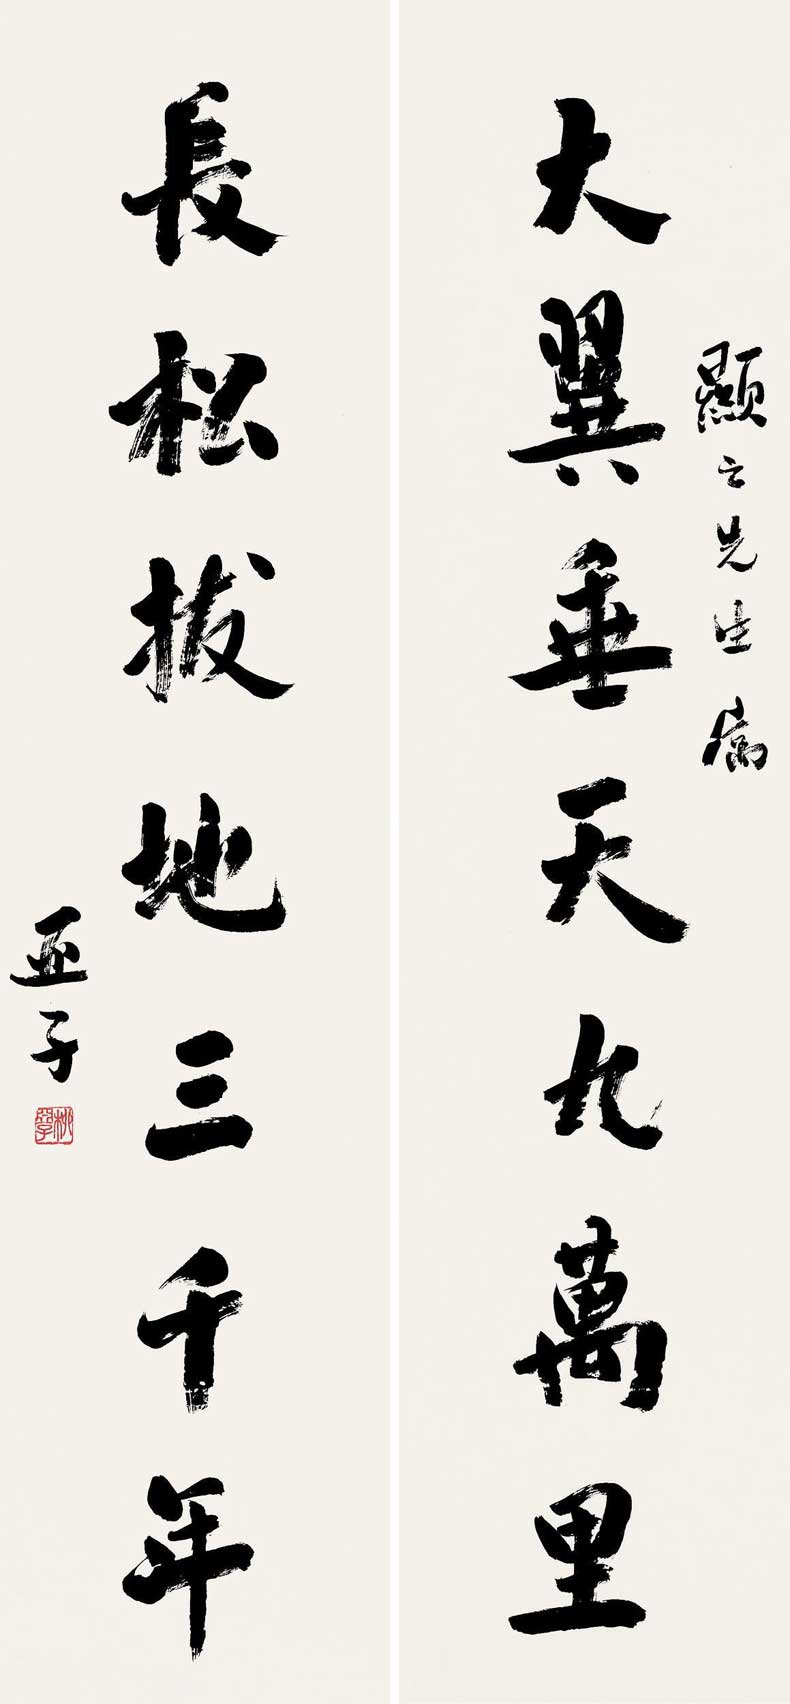 顯之先生属
大翼垂天九萬里
長松拔地三千年
亚子